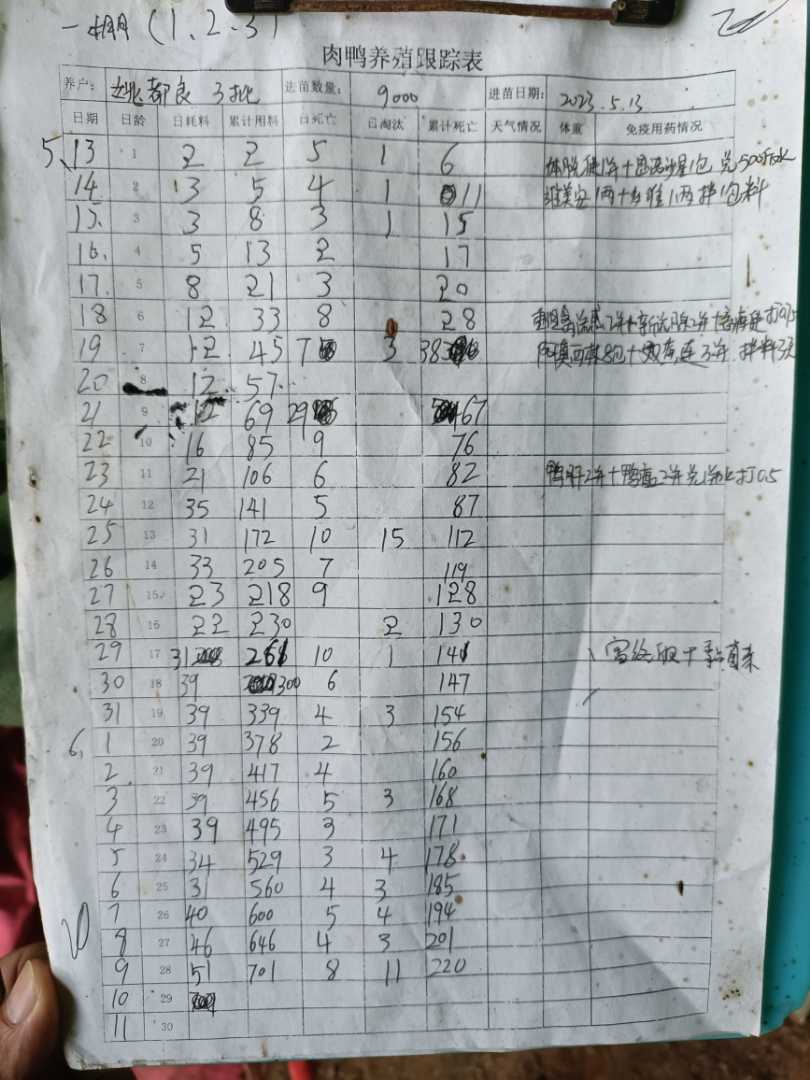 一棚 (1、2、3)
肉鸭养殖跟踪表
养户: 姚都良 3批 进苗数量: 9000 进苗日期: 2023.5.13
日期 日龄 日耗料 累计用料 日死亡 日淘汰 累计死亡 天气情况 体重 免疫用药情况
5、13 1 2 2 5 1 6
14 2 3 5 4 1 11
15. 3 3 8 3 1 15
16. 4 5 13 2 17
17. 5 8 21 3 20
18 6 12 33 8 28
19 7 12 45 7 3 38
20 8 12 57
21 9 12 69 29 67
22 10 16 85 9 76
23 11 21 106 6 82 鸭肝2并+鸭
24 12 35 141 5 87
25 13 31 172 10 15 112
26 14 33 205 7 119
27 15 23 218 9 128
28 16 22 230 2 130
29 17 31 261 10 1 141
30 18 39 300 6 147
31 19 39 339 4 3 154
6、1 20 39 378 2 156
2 21 39 417 4 160
3 22 39 456 5 3 168
4 23 39 495 3 171
5 24 34 529 3 4 178
6 25 31 560 4 3 185
7 26 40 600 5 4 194
8 27 46 646 4 3 201
9 28 51 701 8 11 220
10 29
11 30